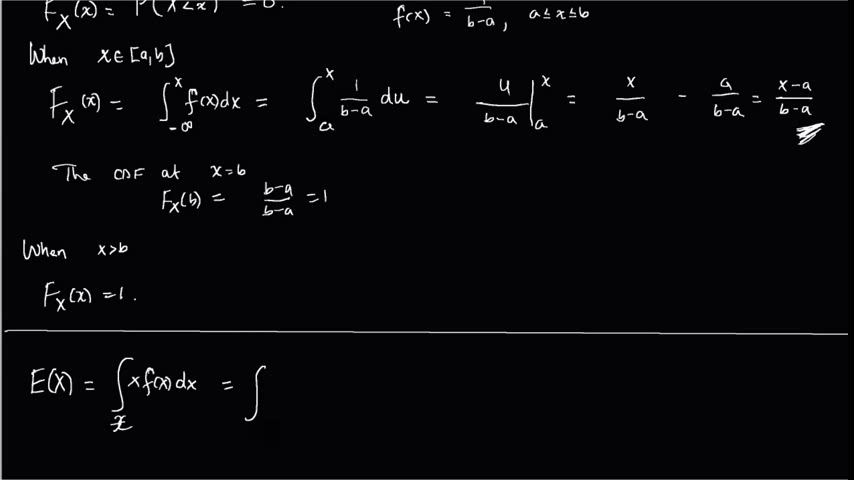 F_X(x) = P(X<x) = 0. f(x) = 1/(b-a), a≤x≤b
When x∈[a,b]
F_X(x) = ∫_{-∞}^{x} f(x)dx = ∫_{a}^{x} 1/(b-a) du = u/(b-a) |_{a}^{x} = x/(b-a) - a/(b-a) = (x-a)/(b-a)
The CDF at x=b
F_X(b) = (b-a)/(b-a) = 1
When x>b
F_X(x) = 1.
E(X) = ∫_{x} x f(x) dx = ∫